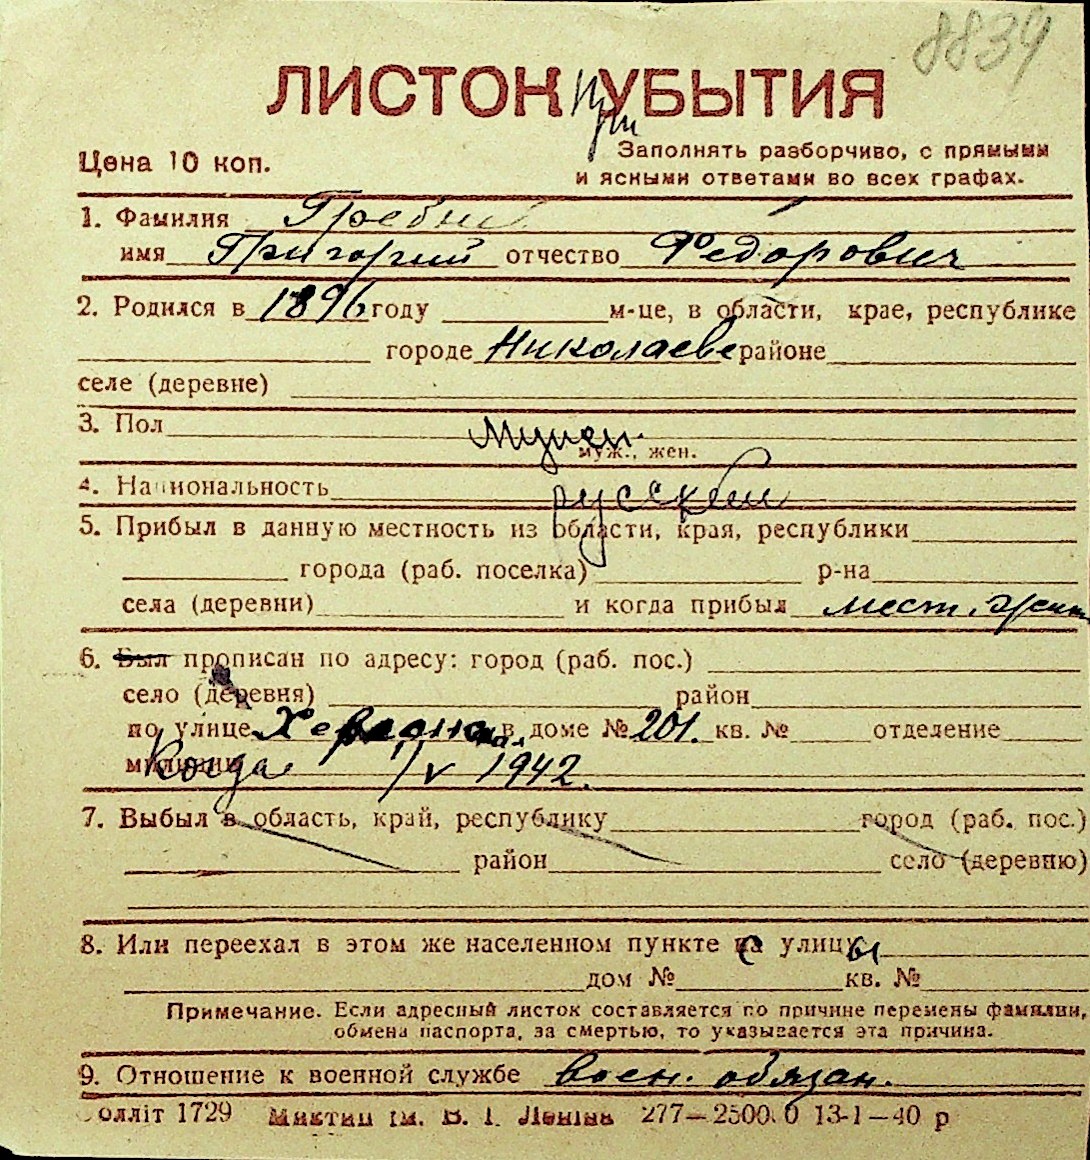 8839
ЛИСТОК при УБЫТИЯ
Цена 10 коп.
Заполнять разборчиво, с прямыми
и ясными ответами во всех графах.
1. Фамилия
имя Григорий отчество Федорович
2. Родился в 1896 году м-це, в области, крае, республике
городе Николаеве районе
селе (деревне)
3. Пол Мужск.
муж., жен.
4. Национальность русский
5. Прибыл в данную местность из области, края, республики
города (раб. поселка) р-на
села (деревни) и когда прибыл мест. жит
6. Был прописан по адресу: город (раб. пос.)
село (деревня) район
по улице в доме № 201. кв. № отделение
милиции Когда 1/V 1942.
7. Выбыл в область, край, республику город (раб. пос.)
район село (деревню)
8. Или переехал в этом же населенном пункте с улицы
дом № кв. №
Примечание. Если адресный листок составляется по причине перемены фамилии,
обмена паспорта, за смертью, то указывается эта причина.
9. Отношение к военной службе воен. обязан.
олліт 1729 ім. В. І. Леніна 277—2500 0 13-1—40 р